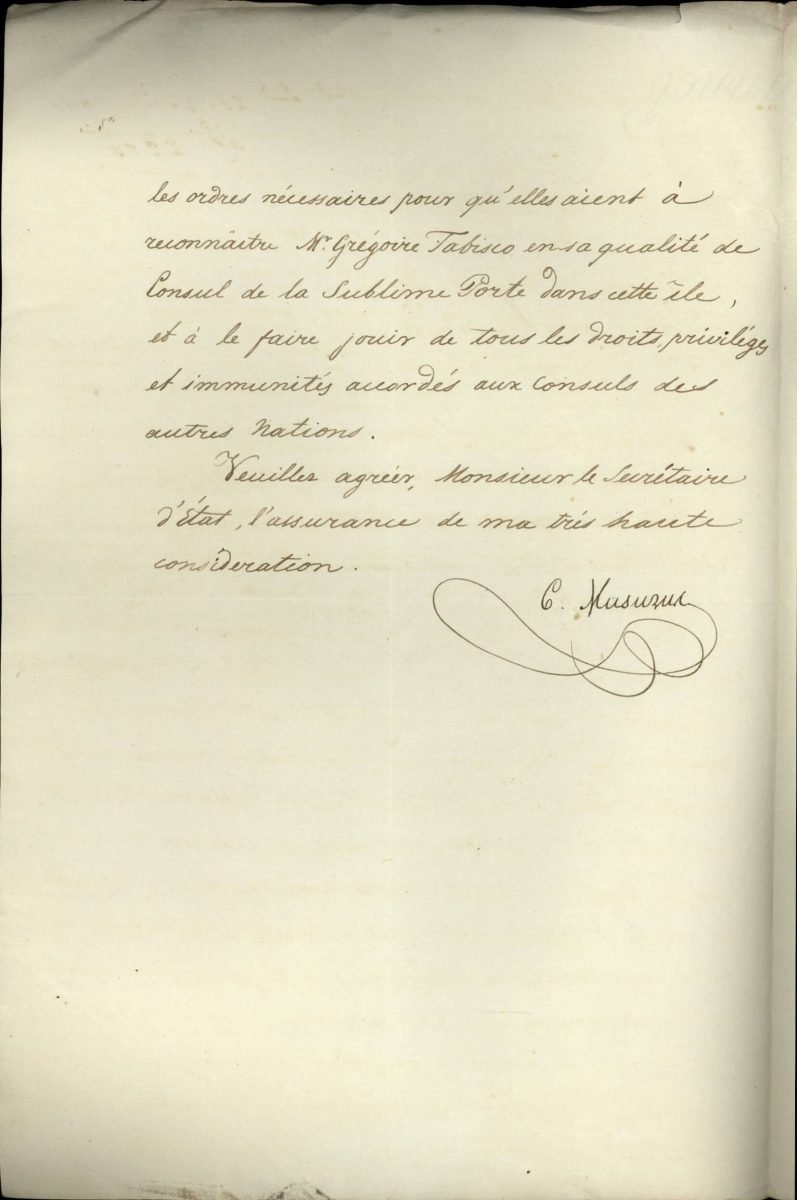 les ordres nécessaires pour qu'elles aient à
reconnaître Mr Grégoire Tabisco en sa qualité de
Consul de la Sublime Porte dans cette île,
et à le faire jouir de tous les droits, priviléges
et immunités accordés aux Consuls des
autres Nations.
Veuillez agréer, Monsieur le Secrétaire
d'État, l'assurance de ma très haute
considération.
C. Musurus